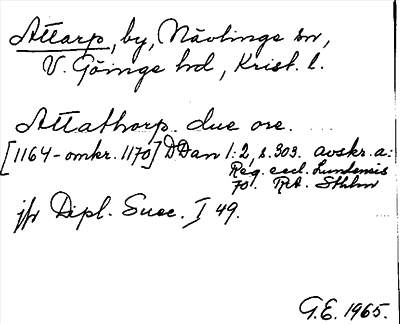 Attarp, by, Nävlinge sn,
V. Göinge hd, Krist. l.
Attathorp. due ore. ....
[1164-omkr. 1170] DDan 1:2, s. 303. avskr. a:
Reg. eccl. Lundensis
70. RA. Sthlm
jfr Dipl. Suec. I 49.
G.E. 1965.